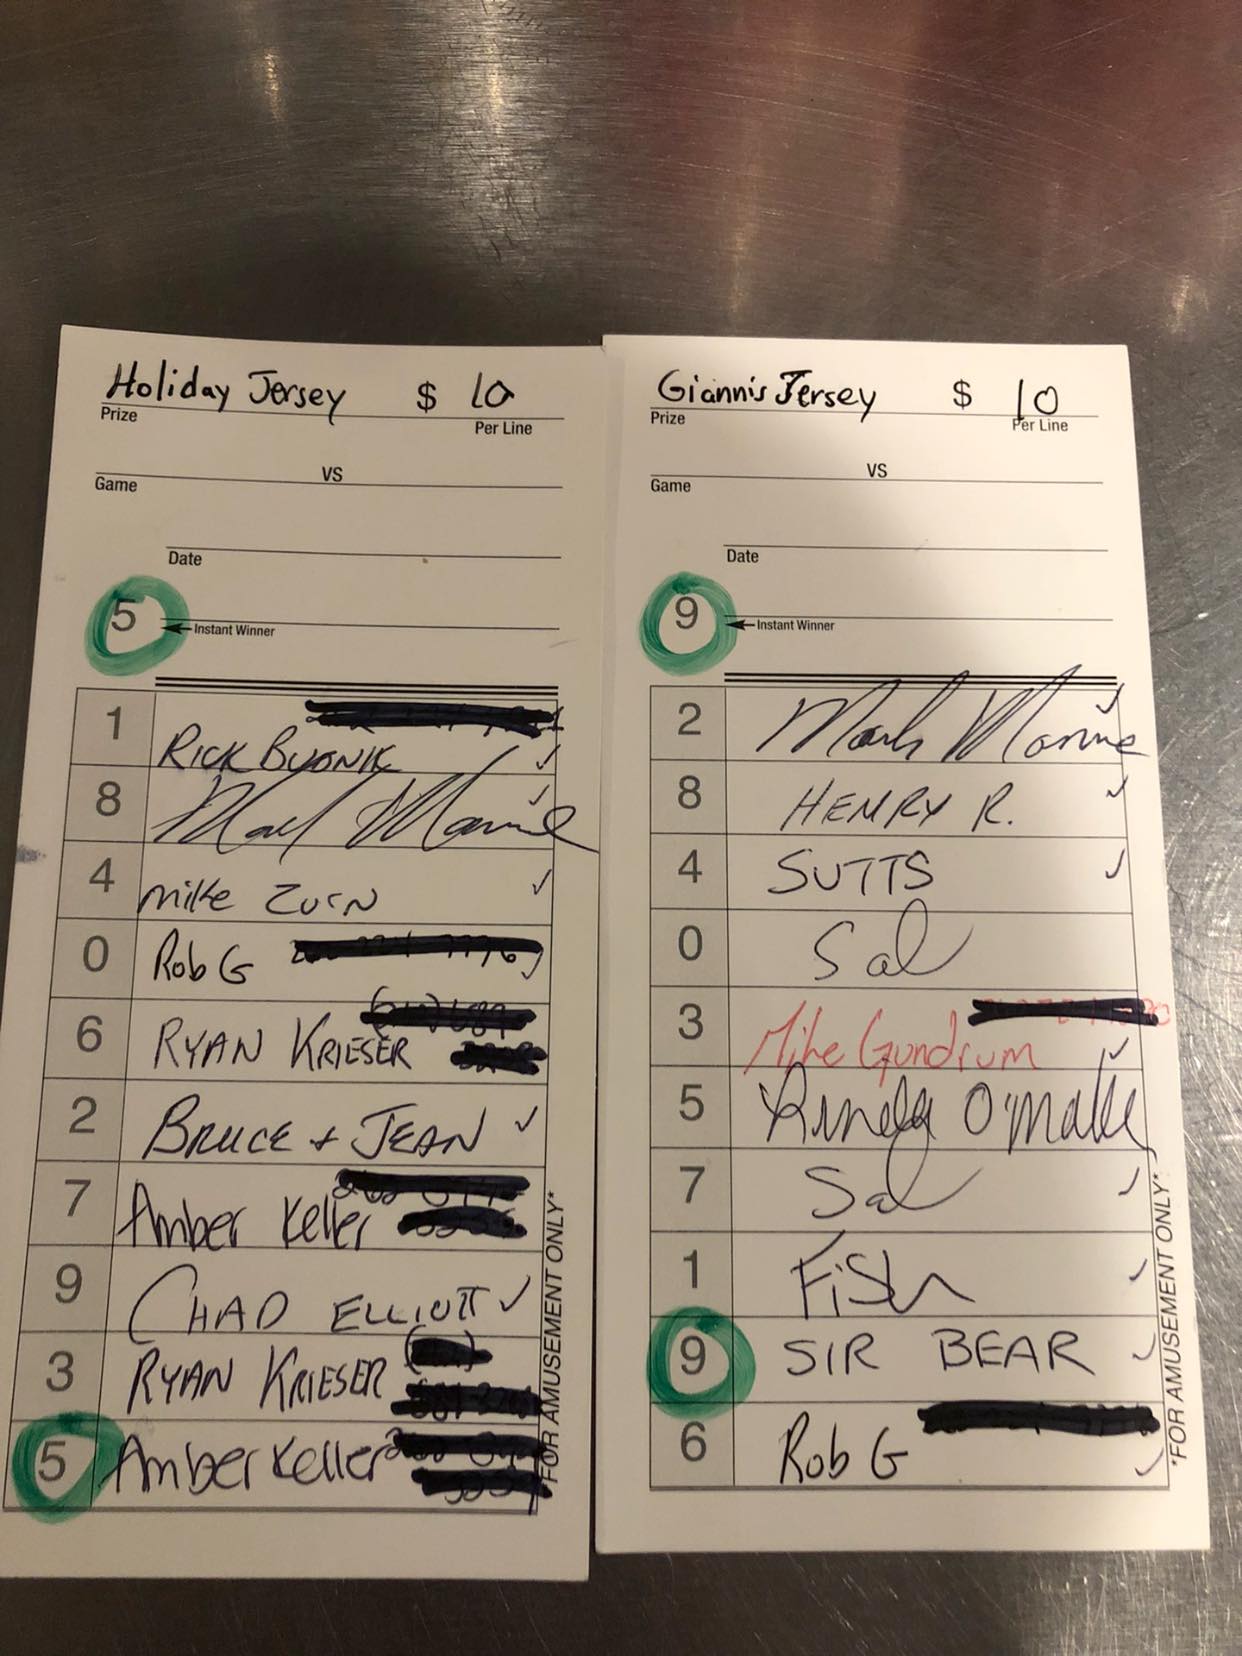 Holiday Jersey $ 10
Prize Per Line
VS
Game
Date
5
Instant Winner
1 RICK
8
4 mike Zurn
0 Rob G
6 RYAN KRIESER
2 BRUCE + JEAN
7 Amber Keller
9 CHAD ELLIOTT
3 RYAN KRIESER
5 Amber Keller
*FOR AMUSEMENT ONLY*
Giannis Jersey $ 10
Prize Per Line
VS
Game
Date
9
Instant Winner
2
8 HENRY R.
4 SUTTS
0 Sal
3 Mike Gundrum
5 O'malley
7 Sal
1 Fish
9 SIR BEAR
6 Rob G
*FOR AMUSEMENT ONLY*